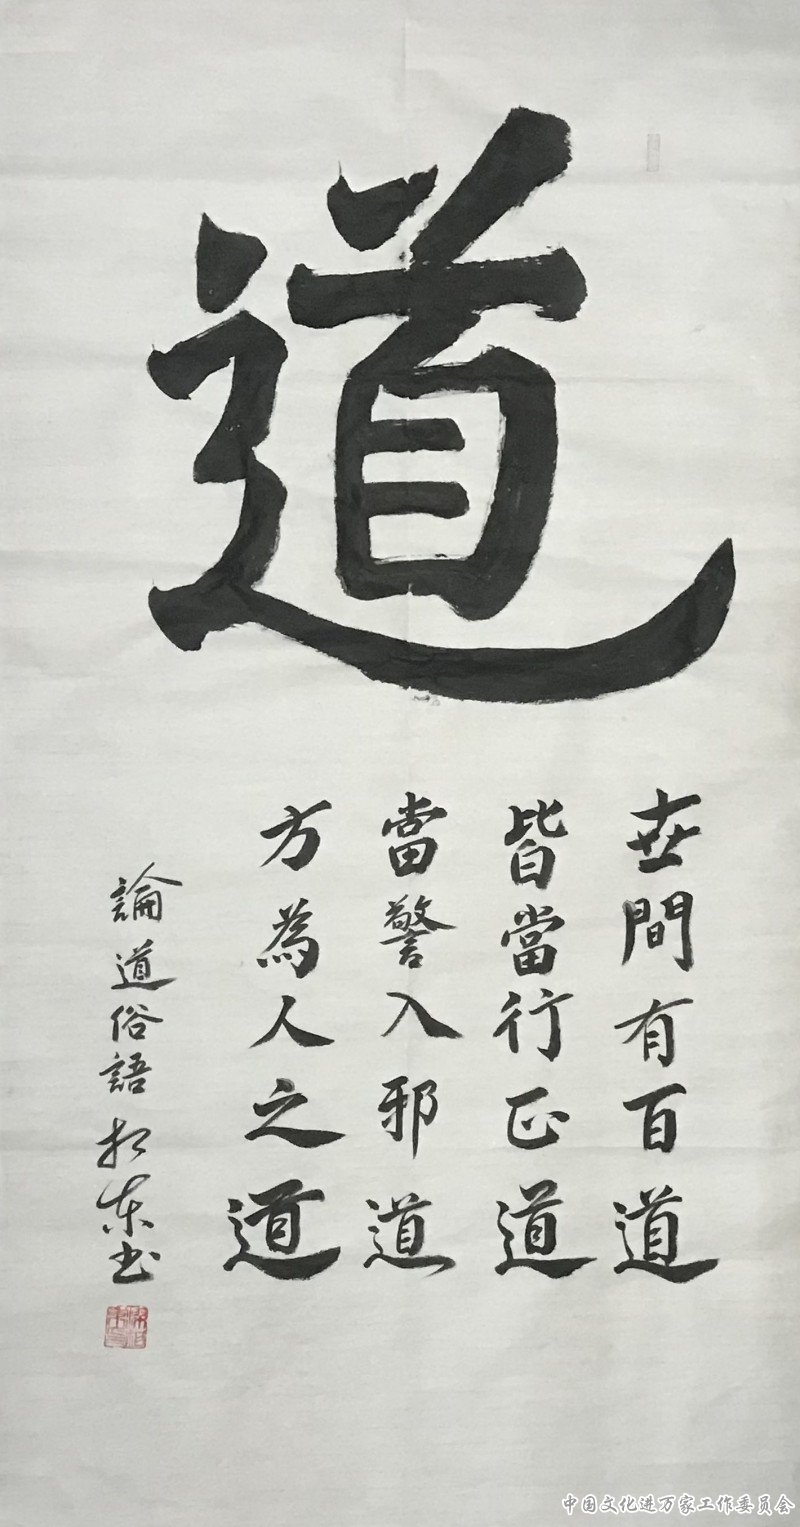 道
世間有百道
皆當行正道
當警入邪道
方為人之道
論道俗語 東书
中国文化进万家工作委员会